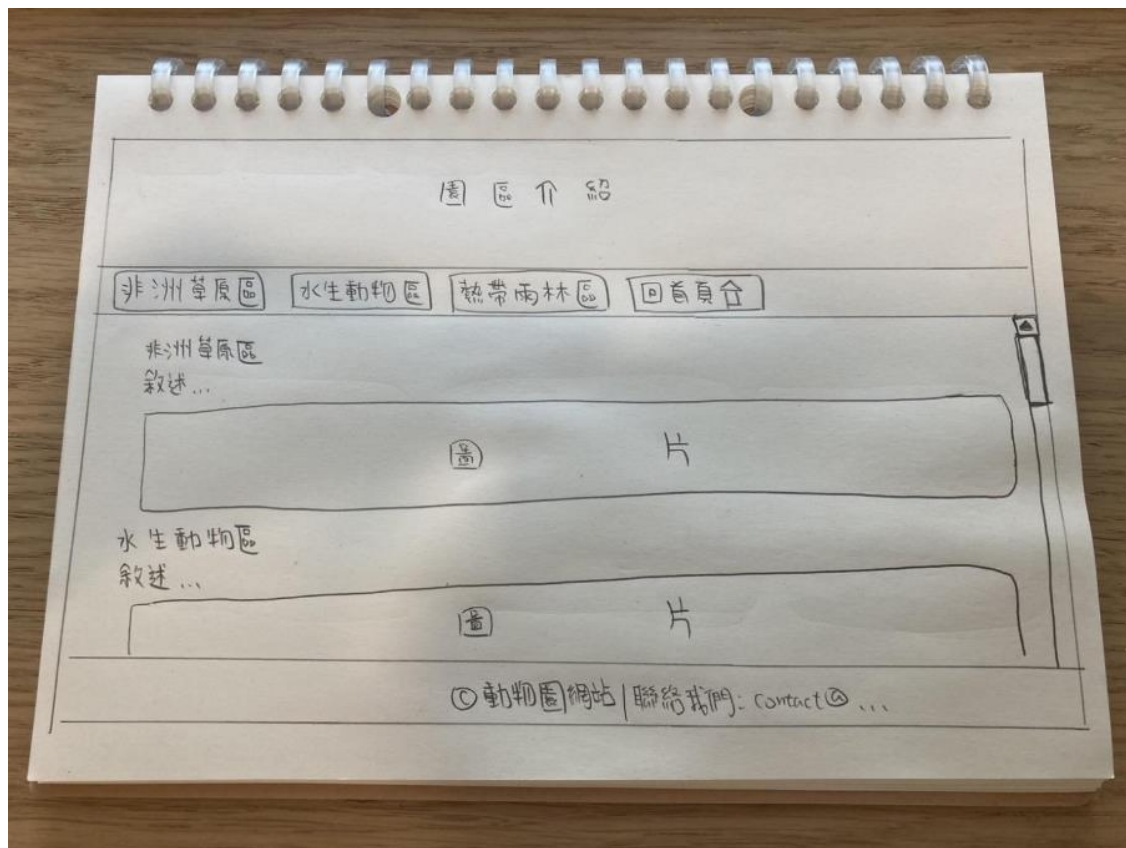 園區介紹
非洲草原區 水生動物區 熱帶雨林區 回首頁
非洲草原區
敘述...
圖 片
水生動物區
敘述...
圖 片
© 動物園網站 | 聯絡我們: contact@...